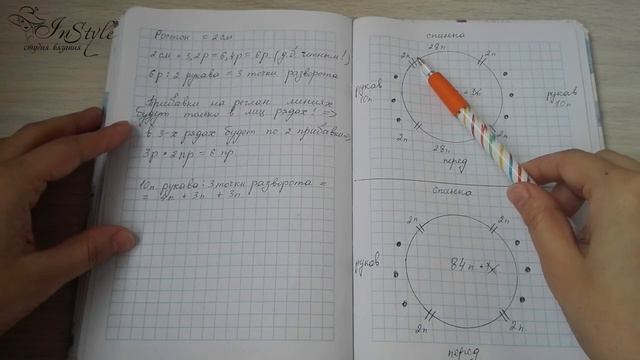 InStyle
студия вязания
Росток = 2см
2см × 3,2р = 6,4р = 6р. (д.б. чётным!)
6р : 2 рукава = 3 точки разворота
Прибавки на реглан. линиях
будет только в лиц рядах! =>
в 3-х рядах будет по 2 прибавки
3р × 2пр = 6 пр
10п. рукава : 3 точки разворота =
= 4п + 3п + 3п
спинка
28п
2п
2п
рукав
10п
рукав
10п
2п
2п
28п
перед
спинка
2п
2п
рукав
84п
2п
2п
перед